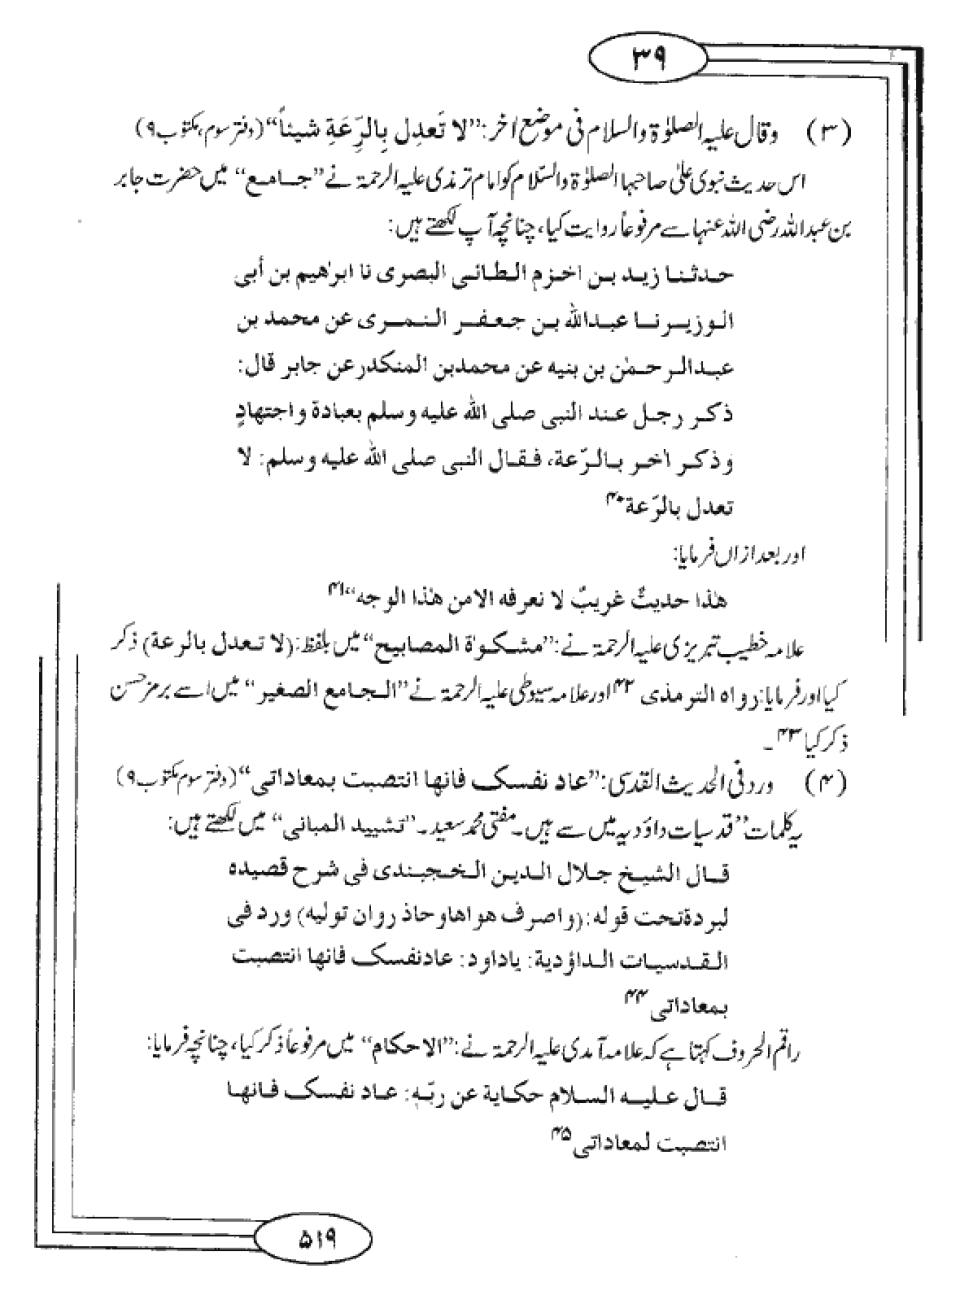 ۳۹
(۳) وقال علیہ الصلوٰۃ والسلام فی موضع اخر: "لا تَعدِل بِالرِّعَةِ شیئاً" (دفتر سوم، مکتوب ۹)
اس حدیث نبوی علیٰ صاحبہا الصلوٰۃ والسّلام کو امام ترمذی علیہ الرحمۃ نے "جامع" میں حضرت جابر
بن عبداللہ رضی اللہ عنہا سے مرفوعاً روایت کیا، چنانچہ آپ لکھتے ہیں:
حدثنا زید بن اخزم الطائی البصری نا ابرٰهیم بن أبی
الوزیر نا عبدالله بن جعفر النمری عن محمد بن
عبدالرحمٰن بن بنیه عن محمدبن المنکدر عن جابر قال:
ذکر رجل عند النبی صلی الله علیه وسلم بعبادة واجتهادٍ
وذکر اٰخر بالرّعة، فقال النبی صلی الله علیه وسلم: لا
تعدل بالرّعة ۴۰
اور بعد ازاں فرمایا:
هٰذا حدیثٌ غریبٌ لا نعرفه الامن هٰذا الوجه" ۴۱
علامہ خطیب تبریزی علیہ الرحمۃ نے: "مشکوٰة المصابیح" میں بلفظ: (لا تعدل بالرعة) ذکر
کیا اور فرمایا: رواه الترمذی ۴۲ اور علامہ سیوطی علیہ الرحمۃ نے "الجامع الصغیر" میں اسے برمز حسن
ذکر کیا ۴۳۔
(۴) ورد فی الحدیث القدسی: "عاد نفسک فانها انتصبت بمعاداتی" (دفتر سوم مکتوب ۹)
یہ کلمات "قدسیات داؤدیہ میں سے ہیں۔ مفتی محمد سعید۔ "تشیید المبانی" میں لکھتے ہیں:
قال الشیخ جلال الدین الخجبندی فی شرح قصیده
لبردة تحت قوله: (واصرف هواها وحاذر وان تولیه) ورد فی
القدسیات الداؤدیة: یاداود: عادنفسک فانها انتصبت
بمعاداتی ۴۴
راقم الحروف کہتا ہے کہ علامہ آمدی علیہ الرحمۃ نے: "الاحکام" میں مرفوعاً ذکر کیا، چنانچہ فرمایا:
قال علیه السلام حکایة عن ربّه: عاد نفسک فانها
انتصبت لمعاداتی ۴۵
۵۱۹